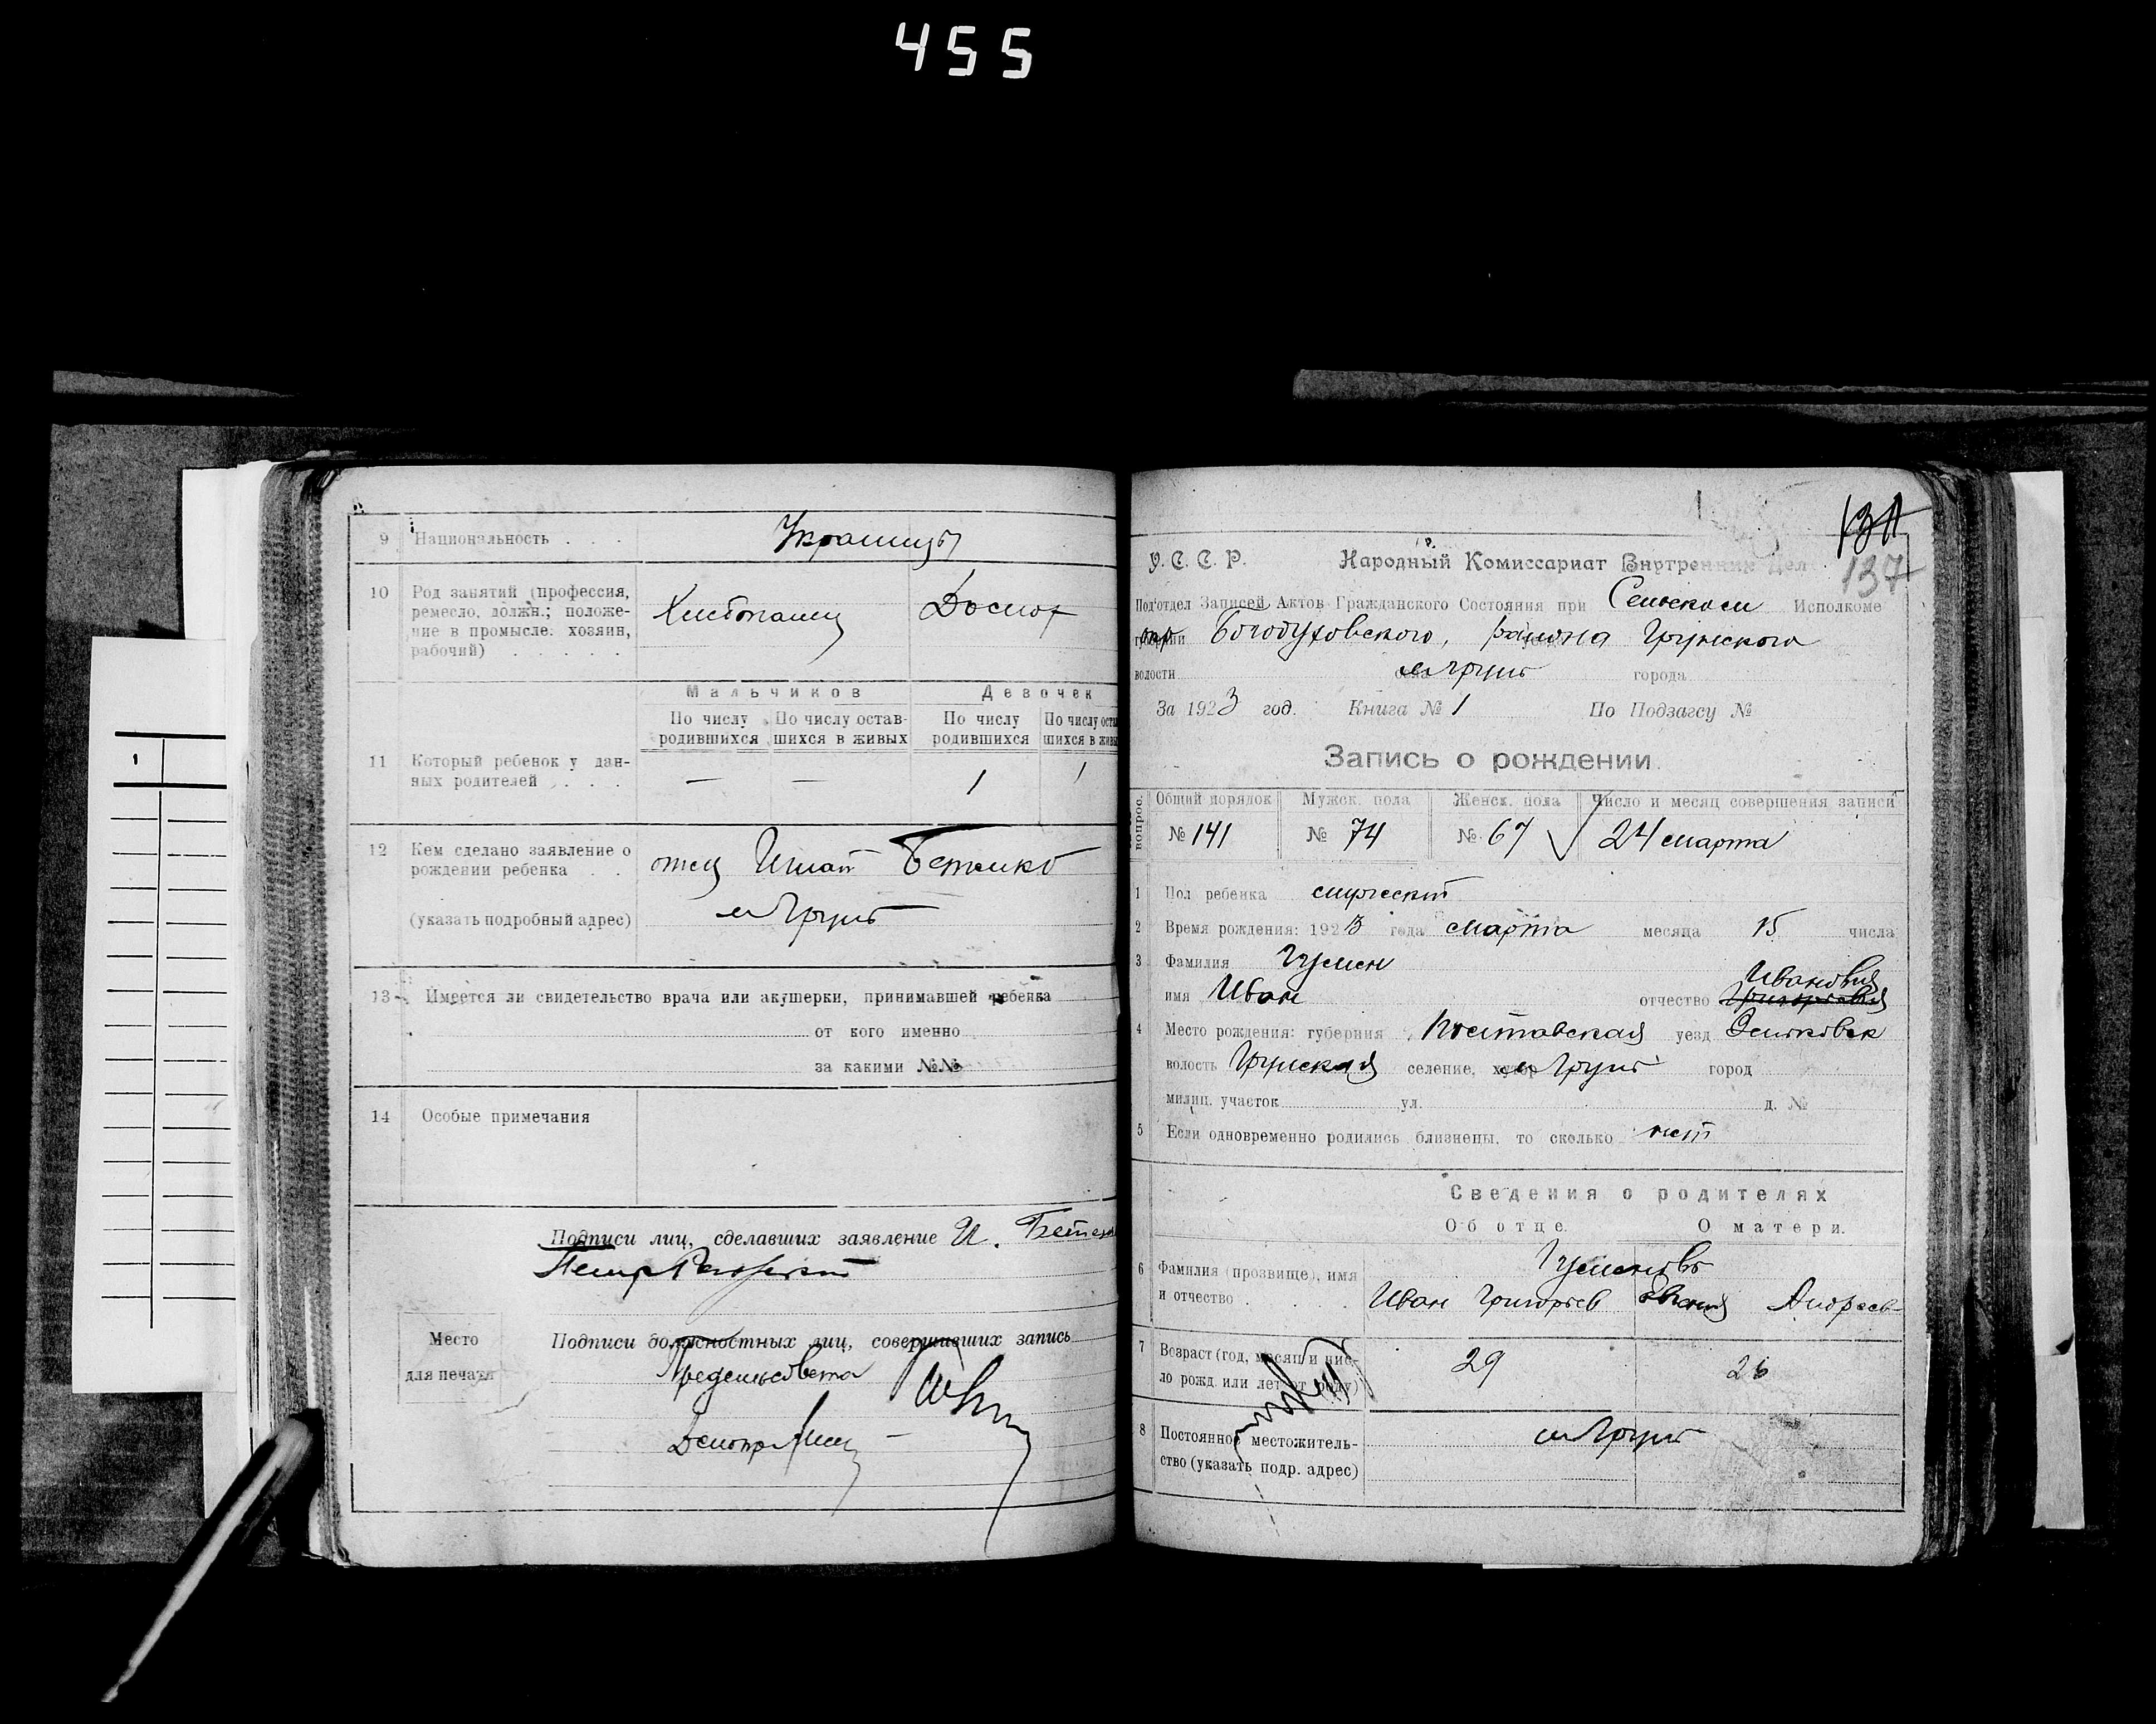 455
9 Национальность . . . Украинцы
10 Род занятий (профессия, ремесло, должн.; положение в промысле: хозяин, рабочий) . . . . . Хлебопашец Домох
Мальчиков Девочек
По числу родившихся По числу оставшихся в живых По числу родившихся По числу оста шихся в жив
11 Который ребенок у данных родителей . . . — — 1 1
12 Кем сделано заявление о рождении ребенка . . отец Игнат
(указать подробный адрес) м Грунь
13 Имеется ли свидетельство врача или акушерки, принимавшей ребенка
от кого именно
за какими №№
14 Особые примечания
Подписи лиц, сделавших заявление И.
Петр
Место для печати
Подписи должностных лиц, совершивших запись
Предсельсовета
Делопр
131
137
У. С. С. Р. Народный Комиссариат Внутренних Дел
Под'отдел Записей Актов Гражданского Состояния при Сельском Исполкоме
окр Богодуховского, района Грунского
волости м Грунь города
За 1923 год. Книга № 1 По Подзагсу №
Запись о рождении
вопрос.
Общий порядок Мужск. пола Женск. пола Число и месяц совершения записи
№ 141 № 74 № 67 24 марта
1 Пол ребенка мужеский
2 Время рождения: 1923 года марта месяца 15 числа
3 Фамилия Гумен
Иванович
имя Иван отчество Григорьевич
4 Место рождения: губерния Полтавская уезд Зеньковск
волость Грунская селение, хутор м Грунь город
милиц. участок ул. д. №
5 Если одновременно родились близнецы, то сколько нет
Сведения о родителях
Об отце. О матери.
6 Фамилия (прозвище), имя и отчество . . . .
Иван Григорьев Андреев
7 Возраст (год, месяц и число рожд. или лет от роду) 29 26
8 Постоянное местожительство (указать подр. адрес) м Грунь
1